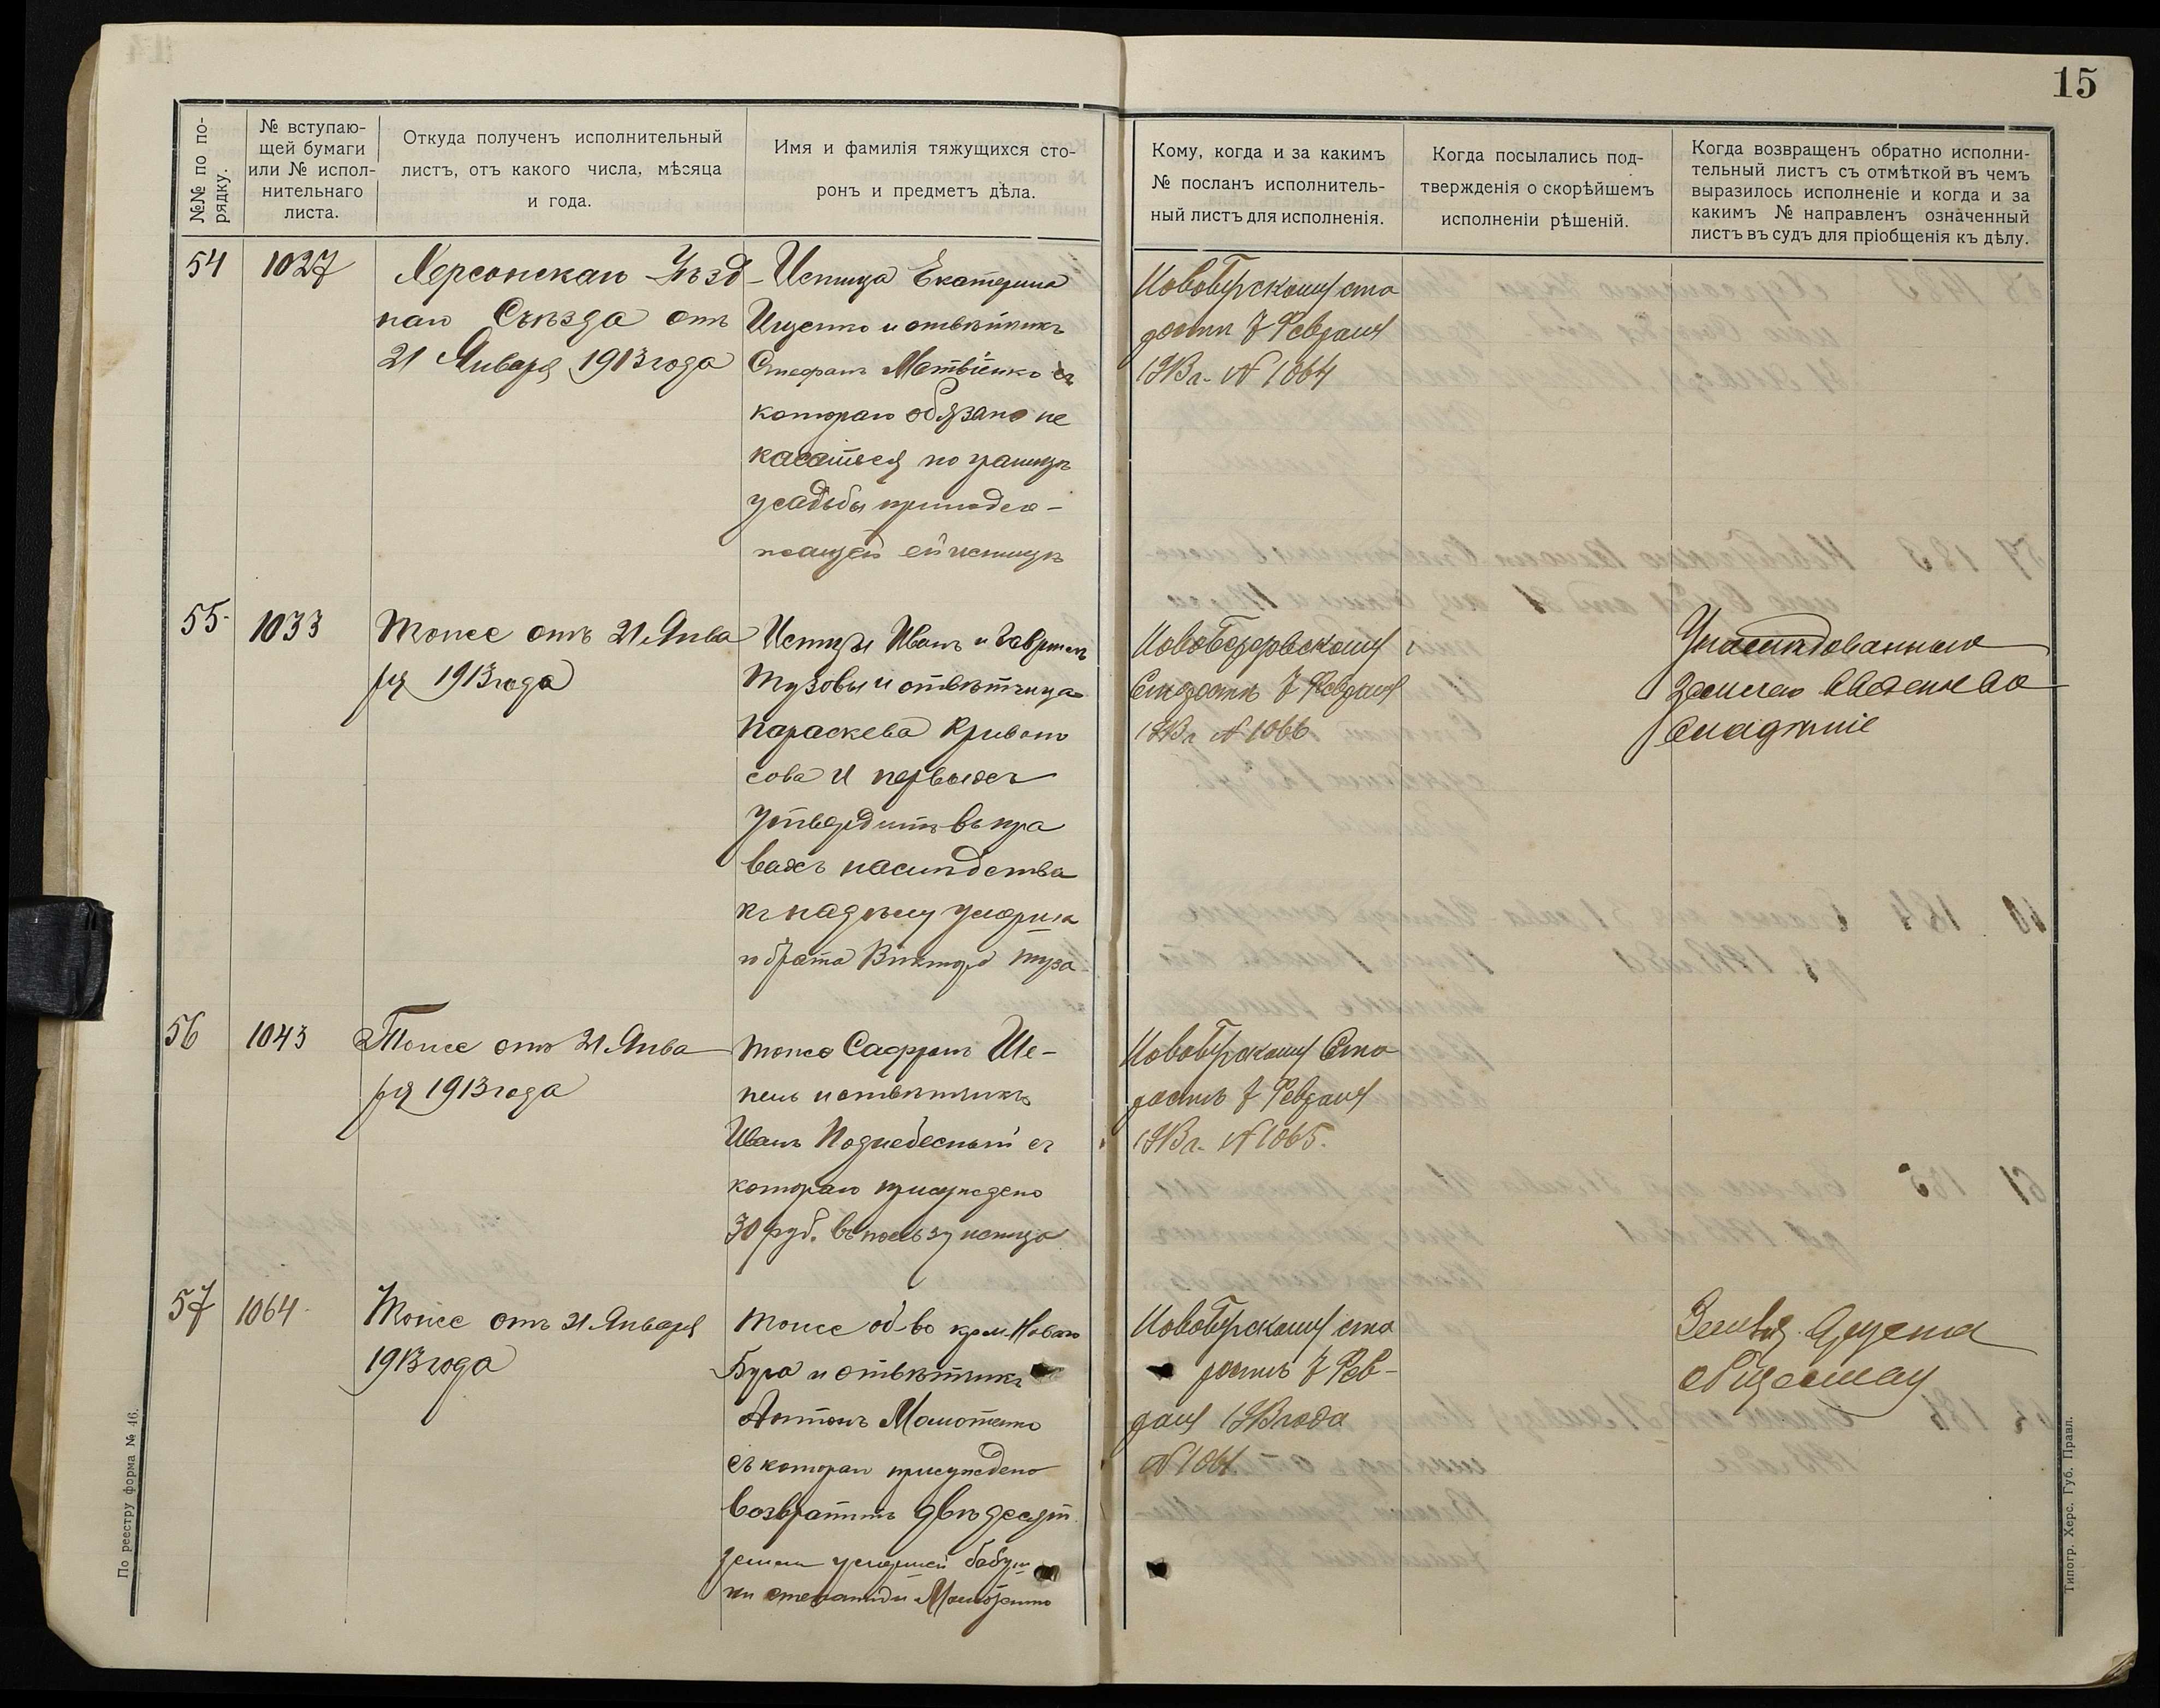 15
№№ по по-
рядку.
№ вступаю-
щей бумаги
или № испол-
нительнаго
листа.
Откуда полученъ исполнительный
листъ, отъ какого числа, мѣсяца
и года.
Имя и фамилія тяжущихся сто-
ронъ и предметъ дѣла.
Кому, когда и за какимъ
№ посланъ исполнитель-
ный листъ для исполненія.
Когда посылались под-
твержденія о скорѣйшемъ
исполненіи рѣшеній.
Когда возвращенъ обратно исполни-
тельный листъ съ отмѣткой въ чемъ
выразилось исполненіе и когда и за
какимъ № направленъ означенный
листъ въ судъ для пріобщенія къ дѣлу.
54
1027
Херсонскаго Уѣзд-
наго Съѣзда отъ
21 Января 1913 года
Истица Екатерина
Ищенко и отвѣтчикъ
Стефанъ Матвіенко съ
котораго обязано не
касаться по границѣ
усадьбы принадле-
жащей ей истицѣ
НовоБугскому ста
ростѣ 7 Февраля
1913 г. № 1064
55.
1033
Тоже отъ 21 Янва
ря 1913 года
Истцы Иванъ и Гавріилъ
Тузовы и отвѣтчица
Параскева Кривоно
сова и первыхъ
утвердить въ пра
вахъ наслѣдства
къ надѣлу умерша
го брата Виктора Туза
Старостѣ 7 Февраля
1913 г № 1066
Унаслѣдованная
земля
56
1043
Тоже отъ 21 Янва
ря 1913 года
Тоже Сафронъ Ше-
пель и отвѣтчикъ
Иванъ Поднебесный съ
котораго присуждено
30 руб. въ пользу истца
НовоБугскому Ста
ростѣ 7 Февраля
1913 г. № 1065.
57
1064
Тоже отъ 21 Января
1913 года
Тоже об-во крест. Новаго
Буга и отвѣтчикъ
Антонъ Мамотенко
съ котораго присуждено
возвратить двѣ десят.
земли умершей бабуш
ки Степаниды Мамотенко
НовоБугскому ста
ростѣ 7 Фев-
раля 1913 года
№ 1061
Земля
обществу
По реестру форма № 46.
Типогр. Херс. Губ. Правл.